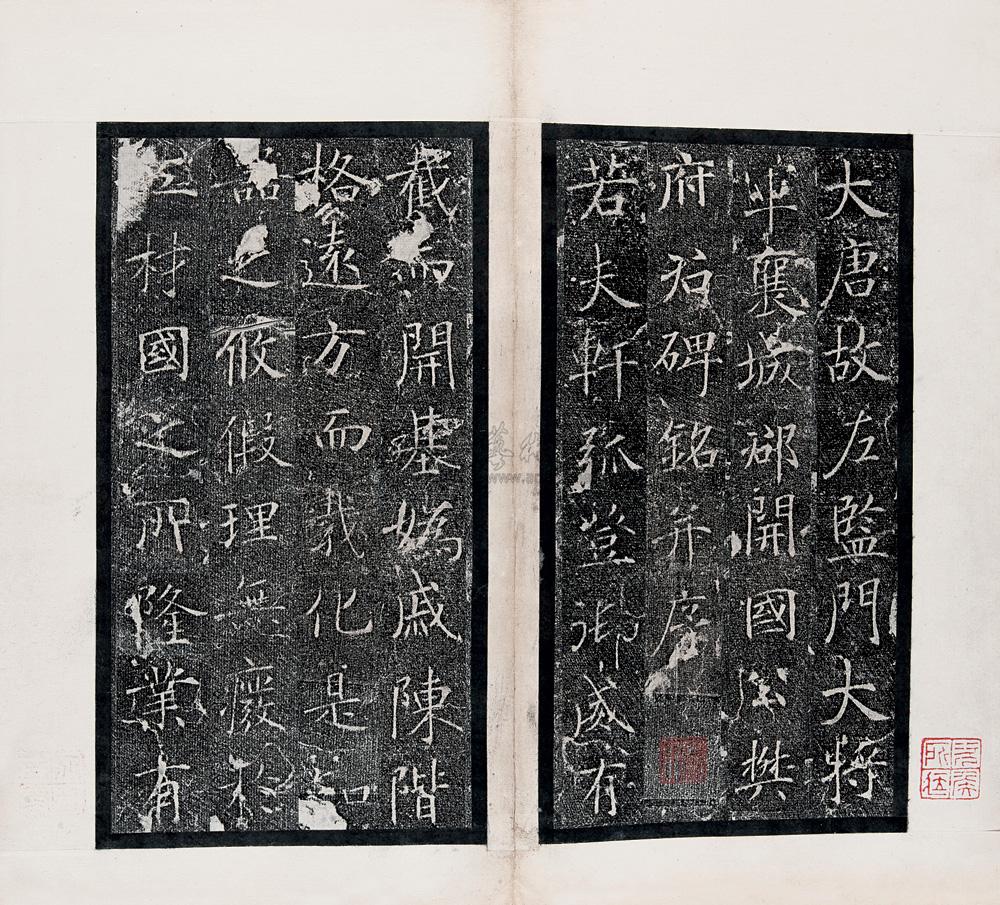 大唐故左監門大將
軍襄城郡開國公樊
府君碑銘并序
若夫軒弧登御威有
截而開基媯戚陳階
格遠方而裁化是知
品之攸假理無廢於
五材國之所隆業有